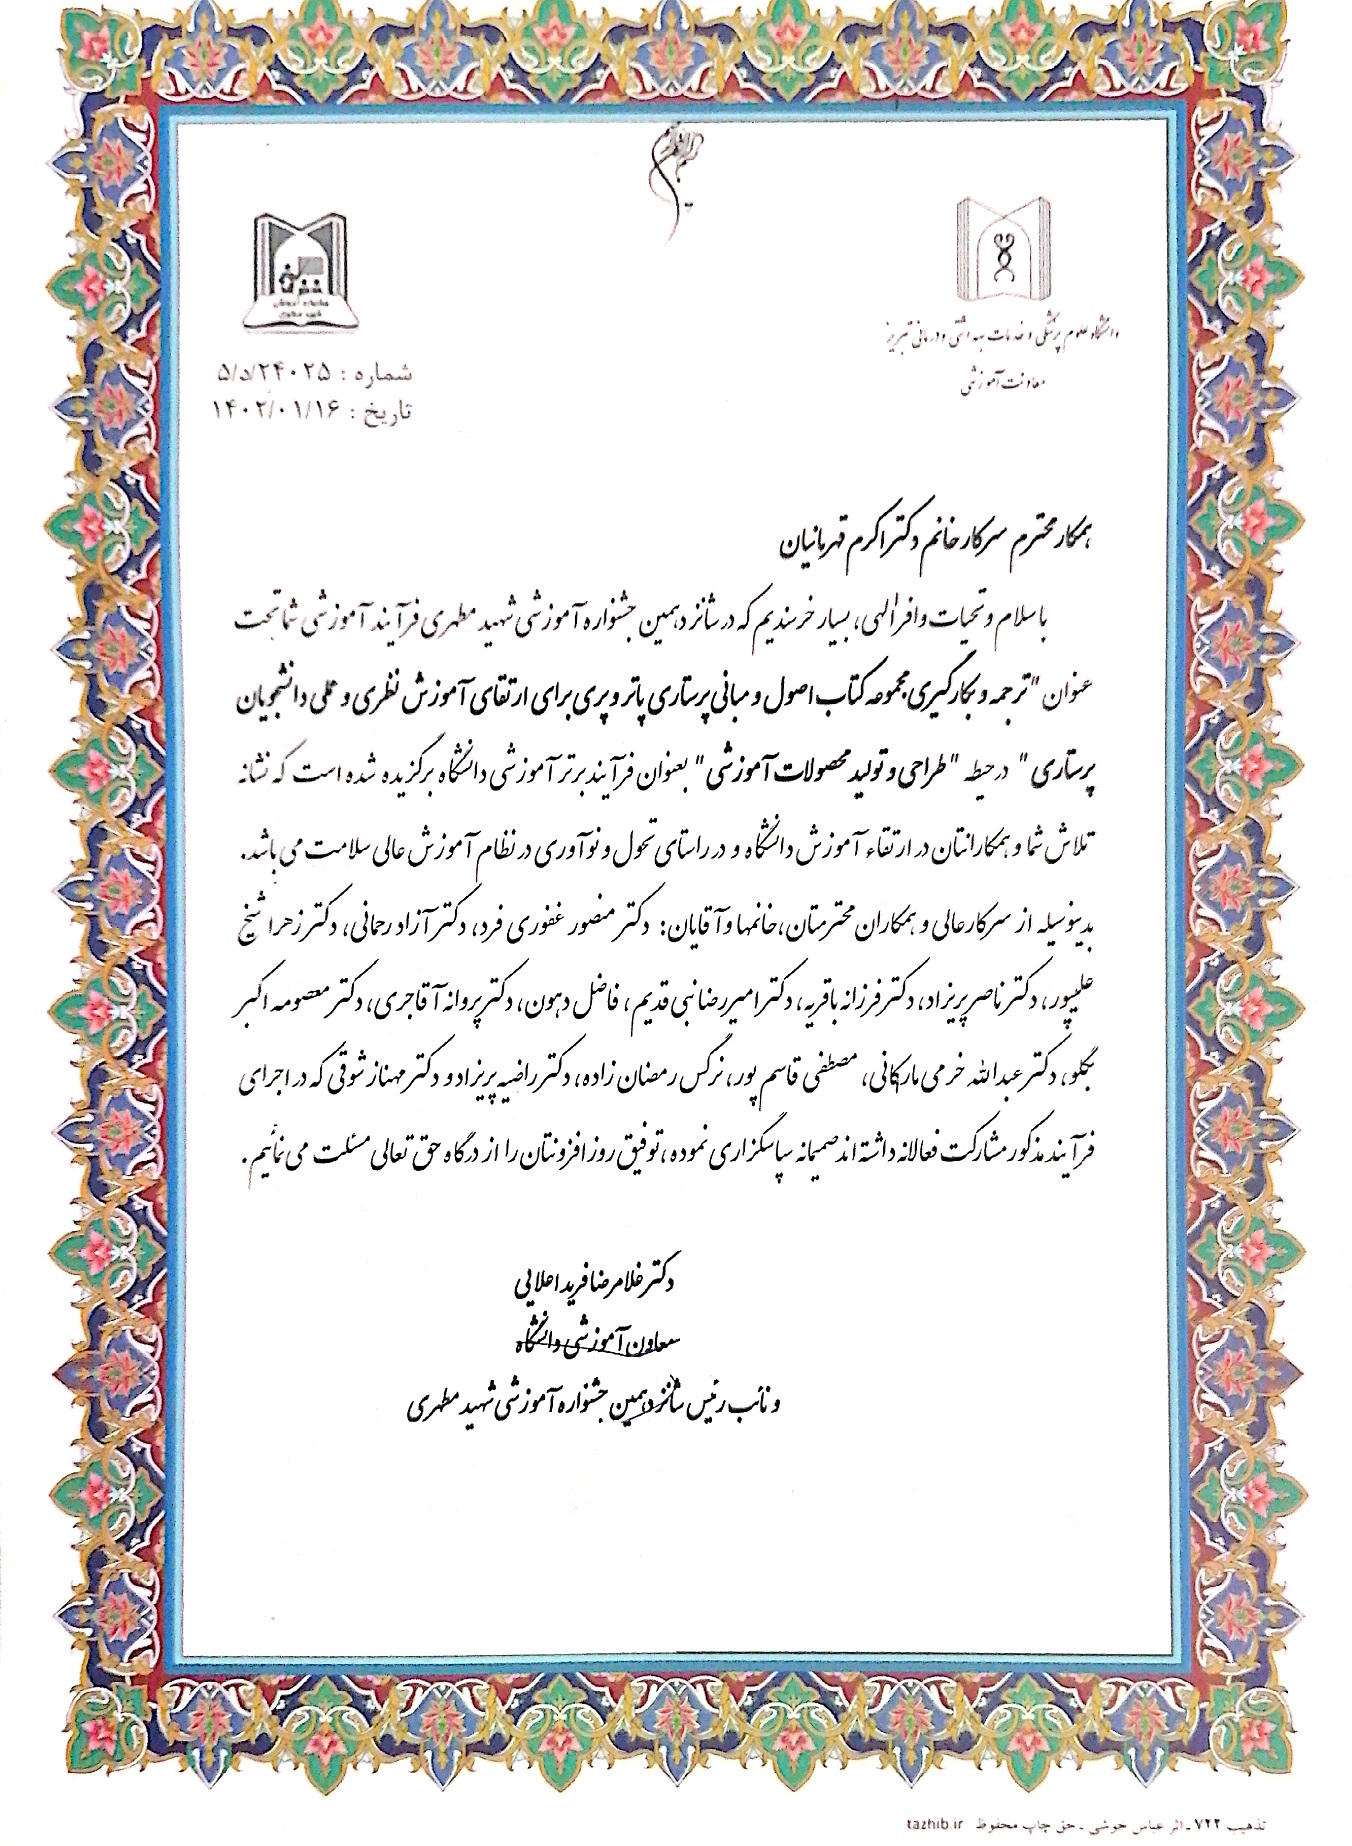 بسم الله الرحمن الرحیم
دانشگاه علوم پزشکی و خدمات بهداشتی و درمانی تبریز
معاونت آموزشی
جشنواره آموزشی
شهید مطهری
شماره : ۵/د/۲۴۰۲۵
تاریخ : ۱۴۰۲/۰۱/۱۶
همکار محترم سرکار خانم دکتر اکرم قهرمانیان
با سلام و تحیات وافر الهی، بسیار خرسندیم که در شانزدهمین جشنواره آموزشی شهید مطهری فرآیند آموزشی شما تحت
عنوان "ترجمه و بکارگیری مجموعه کتاب اصول و مبانی پرستاری پاتر و پری برای ارتقای آموزش نظری و عملی دانشجویان
پرستاری" در حیطه "طراحی و تولید محصولات آموزشی" بعنوان فرآیند برتر آموزشی دانشگاه برگزیده شده است که نشانه
تلاش شما و همکارانتان در ارتقاء آموزش دانشگاه و در راستای تحول و نوآوری در نظام آموزش عالی سلامت می باشد.
بدینوسیله از سرکار عالی و همکاران محترمتان، خانمها و آقایان: دکتر منصور غفوری فرد، دکتر آزاد رحمانی، دکتر زهرا شیخ
علیپور، دکتر ناصر پریزاد، دکتر فرزانه باقریه، دکتر امیررضا نبی قدیم، فاضل دهون، دکتر پروانه آقاجری، دکتر معصومه اکبر
بگلو، دکتر عبدالله خرمی مارکانی، مصطفی قاسم پور، نرگس رمضان زاده، دکتر راضیه پریزاد و دکتر مهناز شوقی که در اجرای
فرآیند مذکور مشارکت فعالانه داشته اند صمیمانه سپاسگزاری نموده، توفیق روزافزونتان را از درگاه حق تعالی مسئلت می نمائیم.
دکتر غلامرضا فرید اعلایی
معاون آموزشی دانشگاه
و نائب رئیس شانزدهمین جشنواره آموزشی شهید مطهری
تذهیب ۷۲۲ ـ اثر عباس خوشی ـ حق چاپ محفوظ tazhib.ir